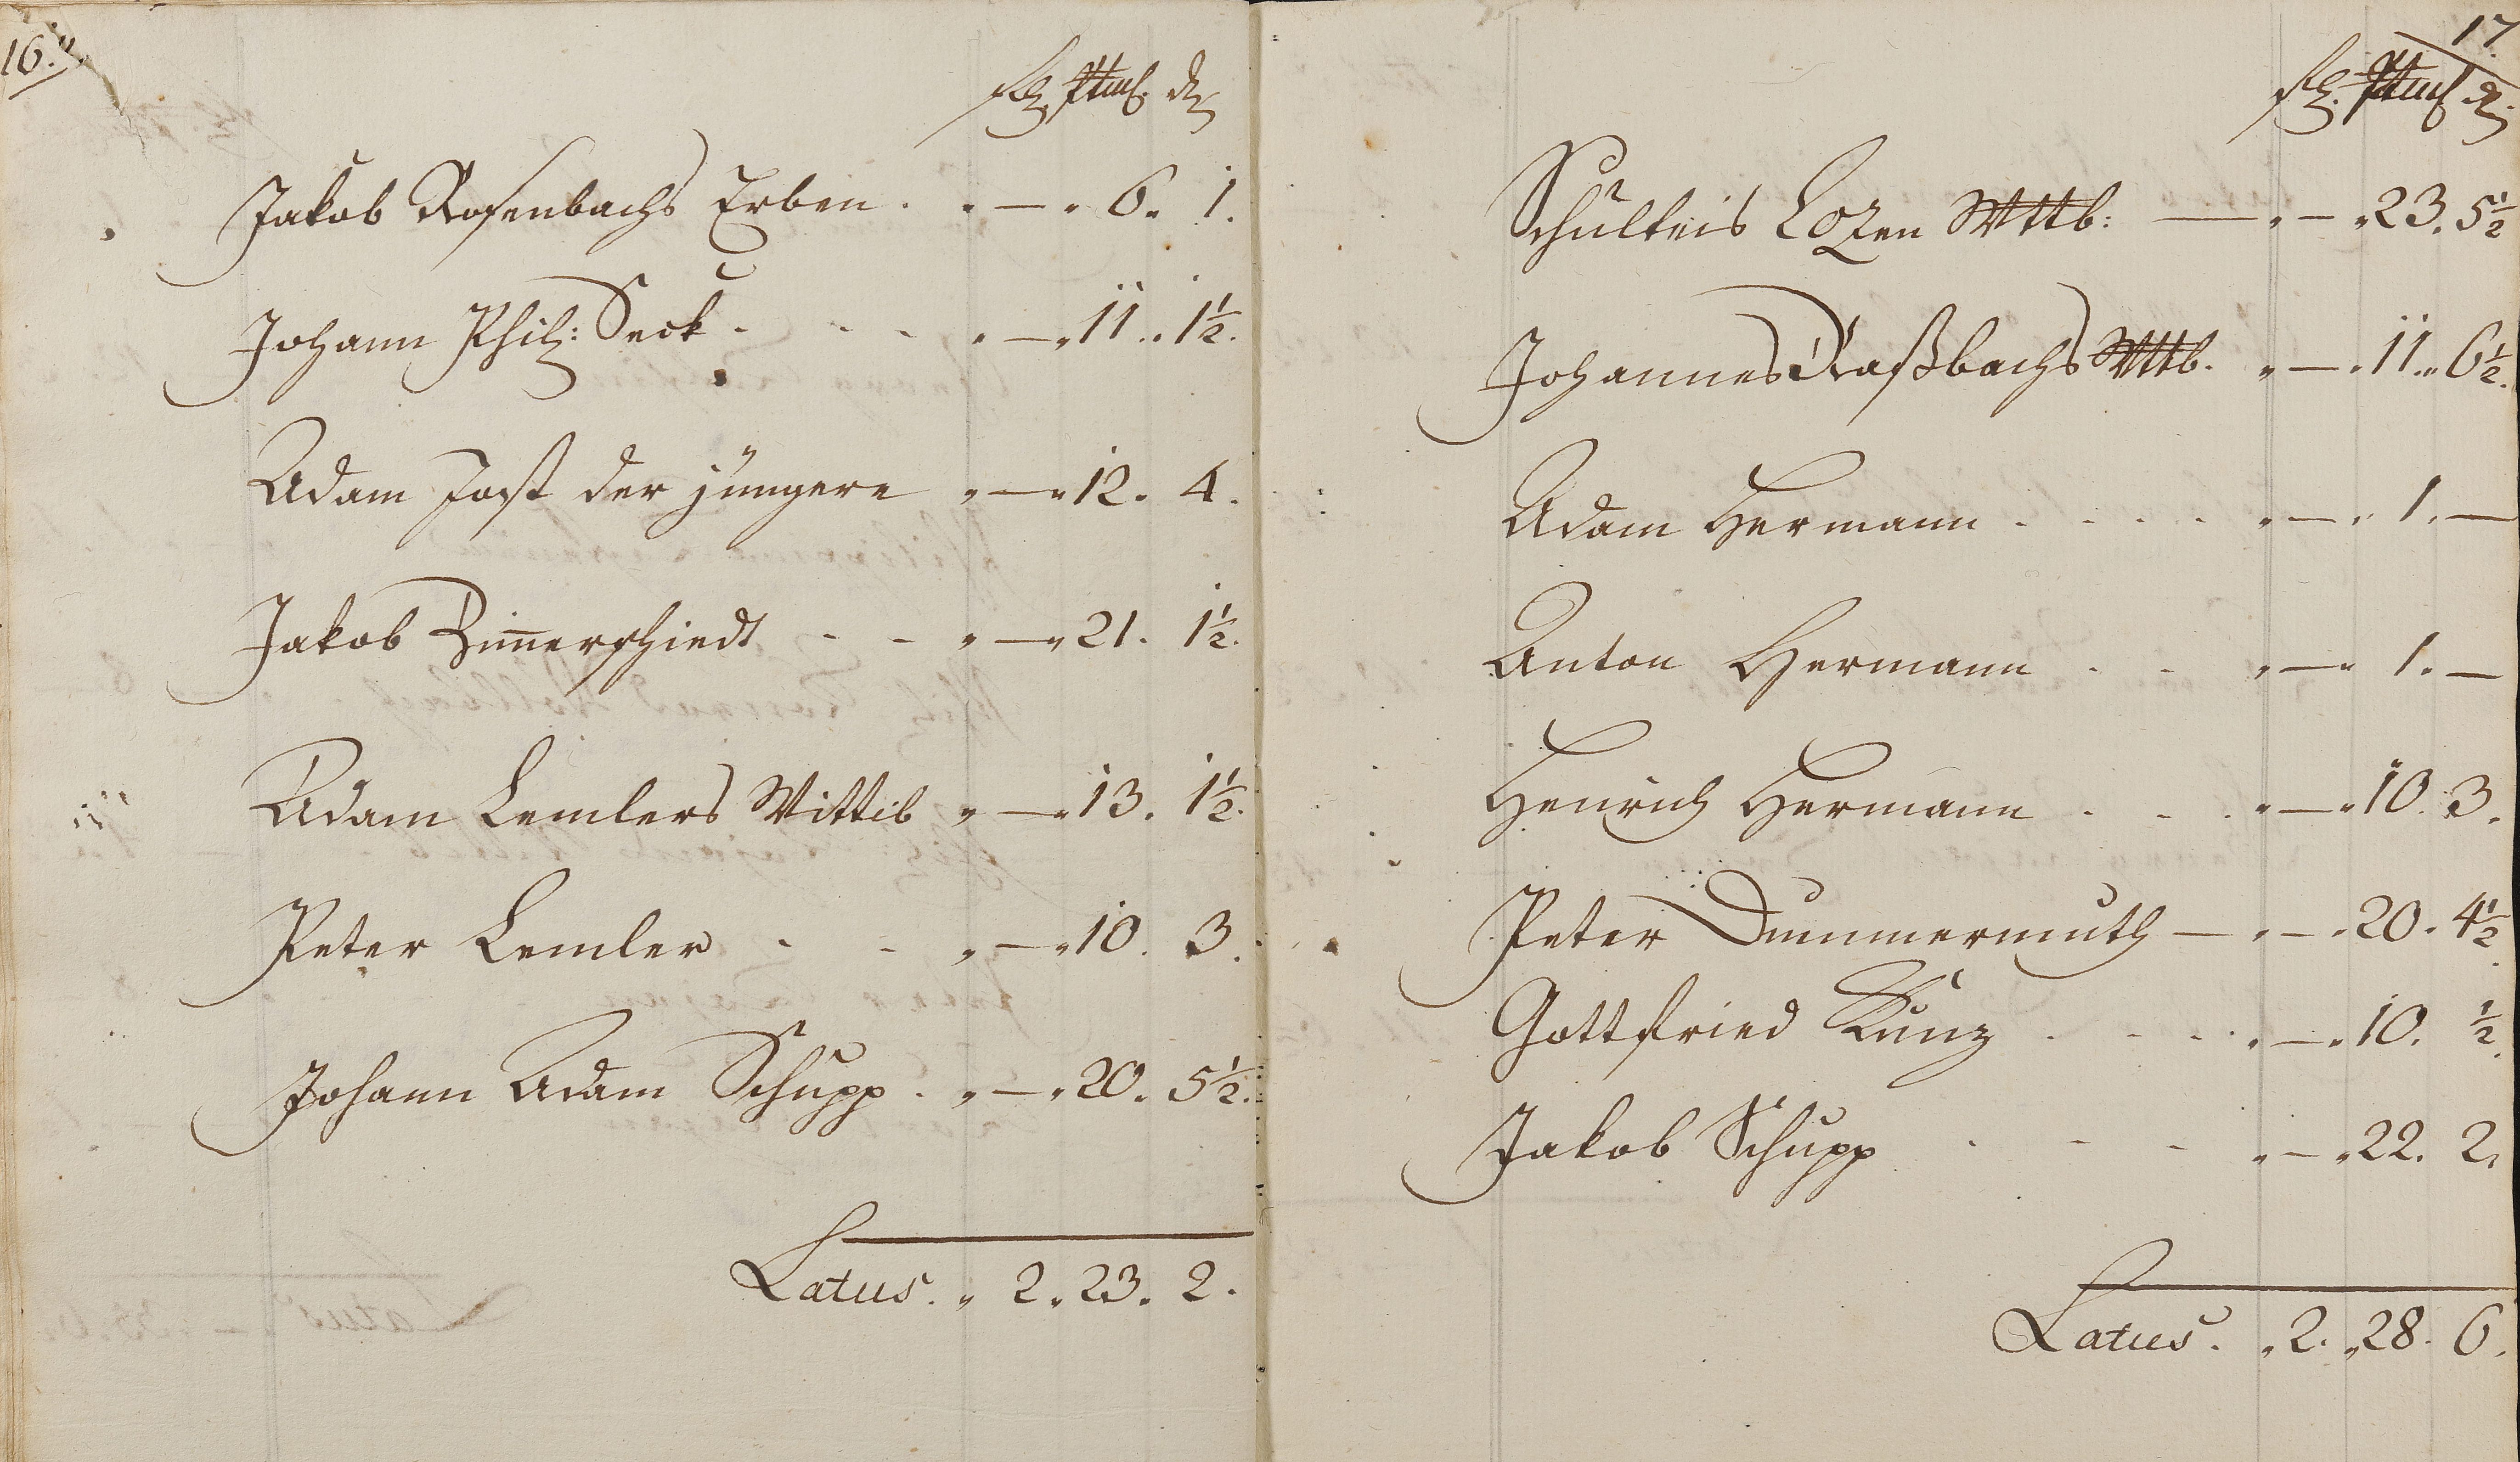 16.
Jakob Rosenbachs Erben . „ — „ 6. 1.
Johann Phil: Seck - - - „ — „ 11. 1½.
Adam Jost der jüngere „ — „ 12. 4.
Jakob Zim̄erschiedt - - „ — „ 21. 1½.
Adam Lemlers Wittib „ — „ 13. 1½.
Peter Lemler - - „ — „ 10. 3.
Johann Adam Schupp . „ — „ 20. 5½.
Latus. „ 2. 23. 2.
17
Schulteis Lozen Wttb: — „ — „ 23. 5½
Johannes Raßbachs Wttb. „ — „ 11. 6½.
Adam Hermann - - - - „ — „ 1. —
Anton Hermann - - „ — „ 1. —
Henrich Hermann - - - „ — „ 10. 3.
Peter Dummermuth — „ — „ 20. 4½
Gottfried Kunz - - - „ — „ 10. ½.
Jakob Schupp - - - „ — „ 22. 2.
Latus. „ 2. „ 28. 6.